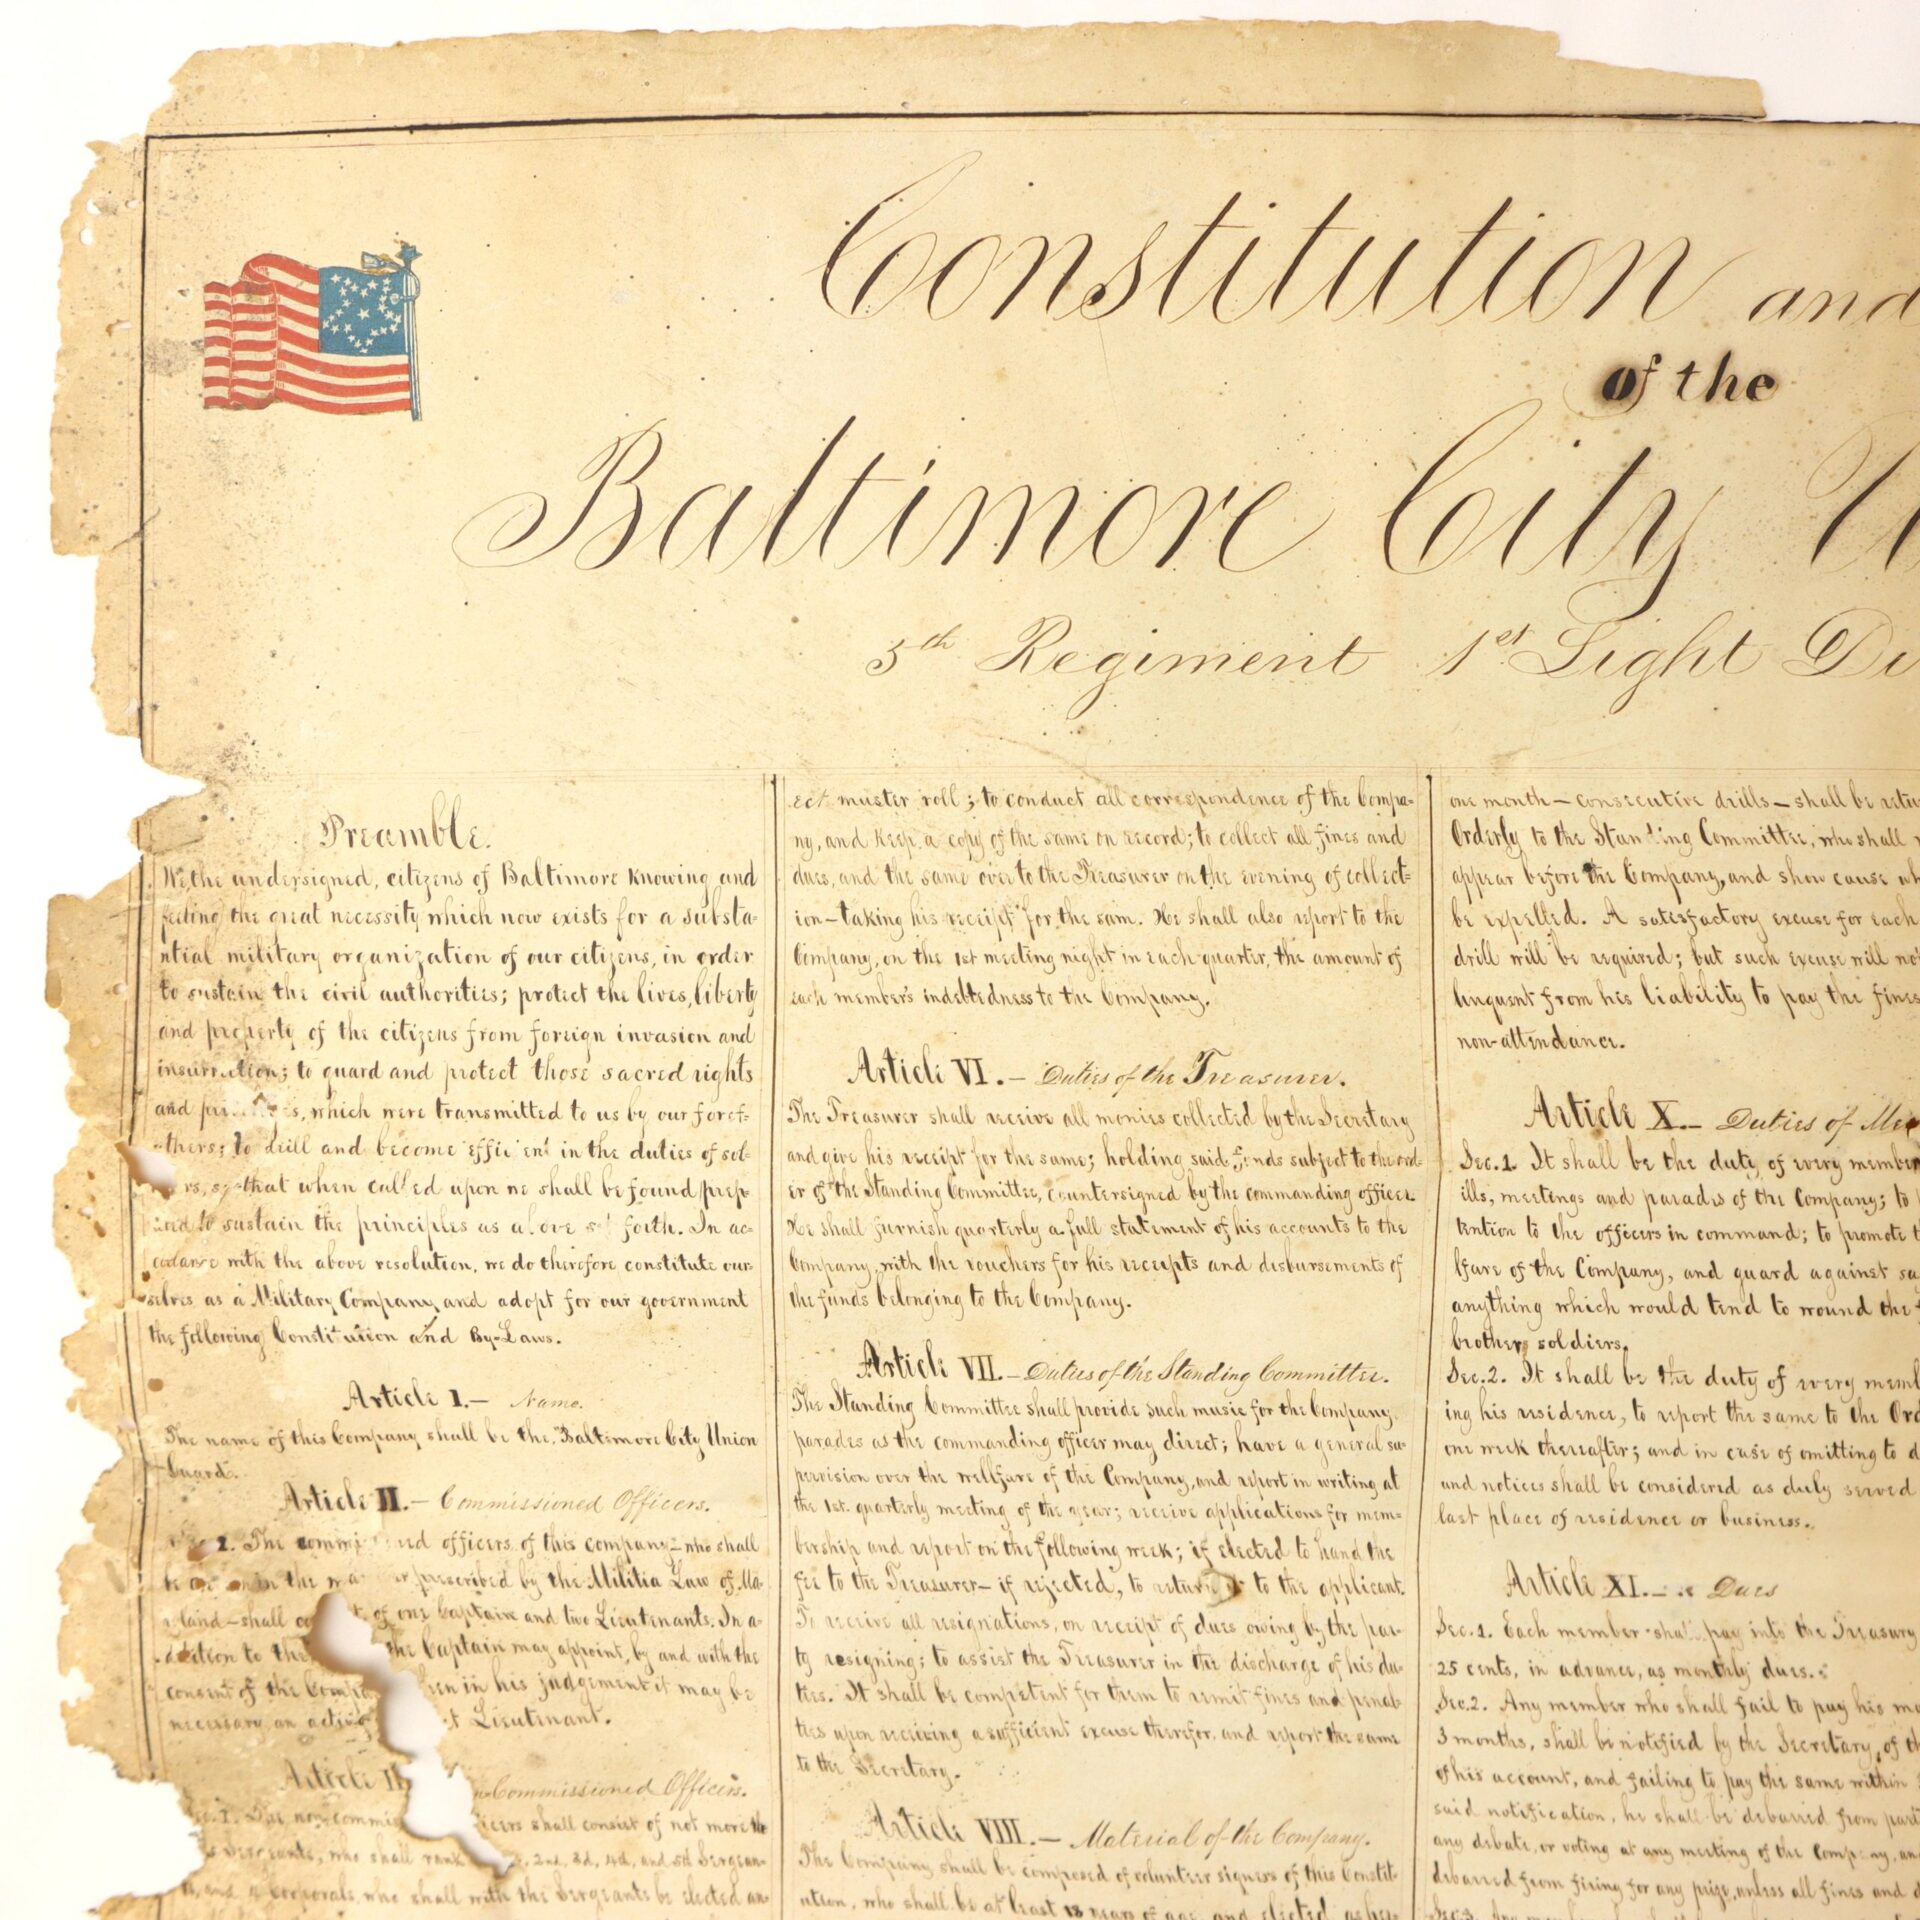 Constitution and
of the
Baltimore City
5th Regiment 1st Light Di
Preamble.
We, the undersigned, citizens of Baltimore knowing and
feeling the great necessity which now exists for a substa-
ntial military organization of our citizens, in order
to sustain the civil authorities; protect the lives, liberty
and property of the citizens from foreign invasion and
insurrection; to guard and protect those sacred rights
and, which were transmitted to us by our foref-
athers; to drill and become efficient in the duties of sol-
rs, so that when called upon we shall be found prep-
ared to sustain the principles as above set forth. In ac-
cordance with the above resolution, we do therefore constitute our-
selves as a Military Company and adopt for our government
the following Constitution and By-Laws.
Article I.— Name.
The name of this Company shall be the, "Baltimore City Union
Guard.
Article II.— Commissioned Officers.
1. The commissioned officers of this company— who shall
in the prescribed by the Militia Law of Ma-
land—shall of one Captain and two Lieutenants. In a-
dition to the the Captain may appoint, by and with the
consent of the in his judgement it may be
necessary, an Lieutenant.
Article Commissioned Officers.
The non-commis icers shall consist of not more
Sergeants, who shall rank 2nd, 3d, 4th, and 5th Sergean-
Corporals, who shall with the Sergeants be elected an-
ect muster roll; to conduct all correspondence of the Compa-
ny, and keep a copy of the same on record; to collect all fines and
dues, and the same over to the Treasurer on the evening of collect-
ion—taking his receipt for the sam. He shall also report to the
Company, on the 1st meeting night in each quarter, the amount of
each member's indebtedness to the Company.
Article VI.— Duties of the Treasurer.
The Treasurer shall receive all monies collected by the Secretary
and give his receipt for the same; holding said funds subject to the ord-
er of the Standing Committee, countersigned by the commanding officer
He shall furnish quarterly a full statement of his accounts to the
Company, with the vouchers for his receipts and disbursements of
the funds belonging to the Company.
Article VII.— Duties of the Standing Committee.
The Standing Committee shall provide such music for the Company
parades as the commanding officer may direct; have a general su-
pervision over the wellfare of the Company, and report in writing at
the 1st. quarterly meeting of the year; receive applications for mem-
bership and report on the following week; if elected to hand the
fee to the Treasurer— if rejected, to return it to the applicant.
To receive all resignations, on receipt of dues owing by the par-
ty resigning; to assist the Treasurer in the discharge of his du-
ties. It shall be competent for them to remit fines and penal-
ties upon receiving a sufficient excuse therefor, and report the same
to the Secretary.
Article VIII.— Material of the Company.
The Company shall be composed of volunteer signers of this Constit-
ution, who shall be at least 18 years of age, and elected
one month—consecutive drills—shall be retur
Orderly to the Standing Committee, who shall
appear before the Company, and show cause wh
be expelled. A satesfactory excuse for each
drill will be required; but such excuse will not
linquent from his liability to pay the fines
non-attendance.
Article X.— Duties of Me
Sec. 1. It shall be the duty of every member
ills, meetings and parades of the Company; to
tention to the officers in command; to promote t
lfare of the Company, and guard against sa
anything which would tend to wound the
brother soldiers.
Sec. 2. It shall be the duty of every memb
ing his residence, to report the same to the Ord
one week thereafter; and in case of omitting to d
and notices shall be considered as duly served
last place of residence or business.
Article XI.— Dues
Sec. 1. Each member shall pay into the Treasury
25 cents, in advance, as monthly dues.
Sec. 2. Any member who shall fail to pay his mo
3 months, shall be notified by the Secretary, of th
of his account, and failing to pay the same within
said notification, he shall be debarred from part
any debate, or voting at any meeting of the Company, an
debarred from firing for any prize, unless all fines and d
Sec. 3. Any